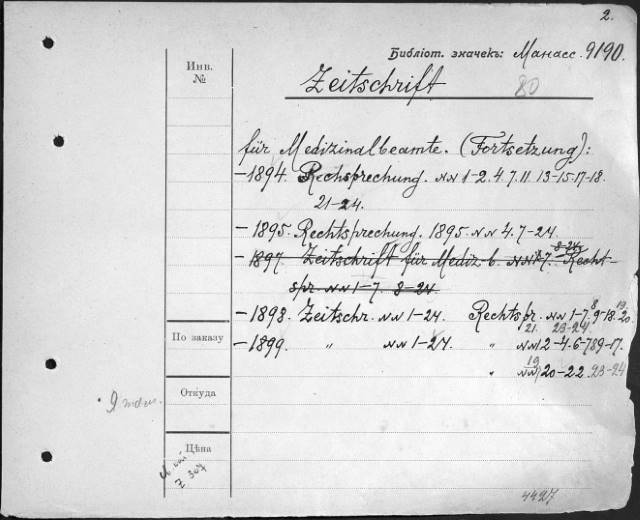 2.
Библіот. значекъ: Манасс. 9190.
Инв.
№
Zeitschrift
80
für Medizinalbeamte. (Fortsetzung):
- 1894. Rechsprechung. NN 1-2.4.7.11.13-15.17-18.
21-24.
- 1895. Rechtsprechung. 1895. NN 4.7-24.
8-24
- 1897. Zeitschrift für Mediz-b. NN 1-7. Recht-
spr. NN 1-7. 8-24.
- 1898. Zeitschr. NN 1-24. Rechtspr. NN 1-7. 8 9-18. 19. 20.
21. 23-24.
По заказу
- 1899. " NN 1-24. " NN 1 2-4.6-7 8 9-17.
19
" NN 20-22. 23-24
Откуда
9
Цѣна
Z 304
4427